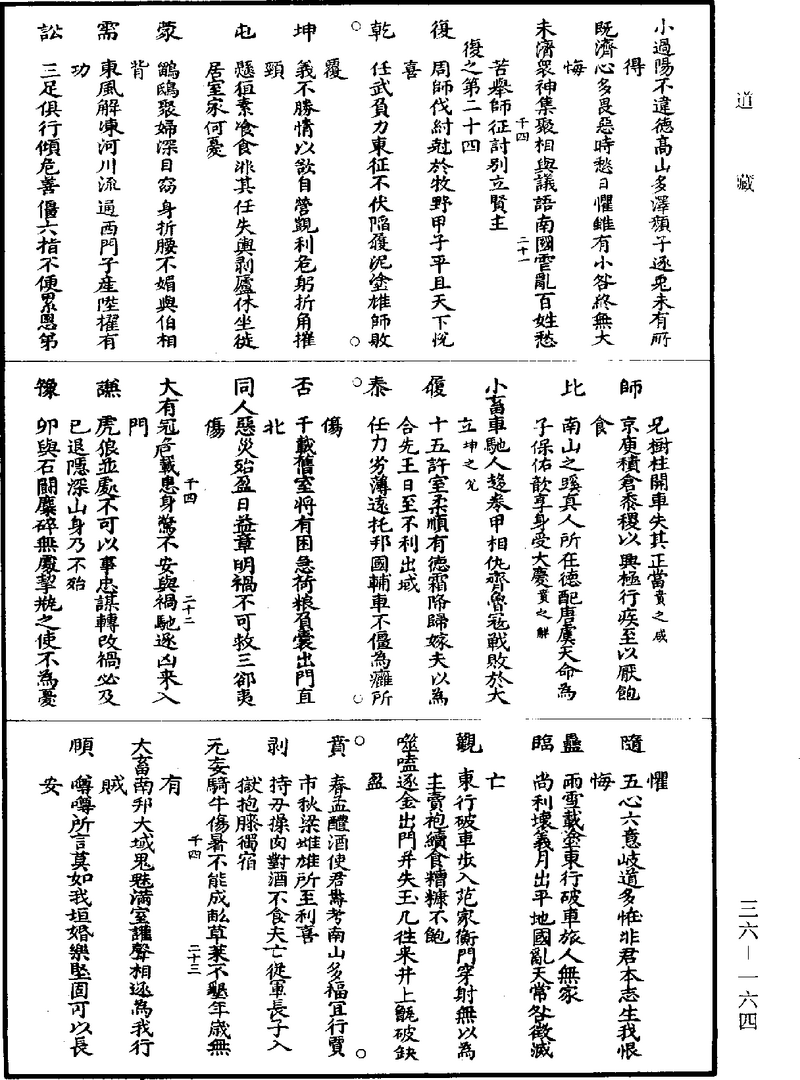 道藏
小過陽不違德高山多澤顏子逐兎未有所
得
既濟心多畏惡時愁日懼雖有小咎終無大
悔
未濟眾神集聚相與議語南國雪亂百姓愁
千四 二十一
苦舉師征討別立賢主
復之第二十四
復 周師伐紂尅於牧野甲子平旦天下悅
喜
乾 任武負力東征不伏陷履泥塗雄師敗
覆
坤 義不勝情以欲自營覬利危躬折角摧
頸
屯 懸狟素飡食非其任失輿剥廬休坐徙
居室家何憂
蒙 鵂鴟娶婦深目窈身折腰不媚與伯相
背
需 東風解凍河川流通西門子產陞擢有
功
訟 三足俱行傾危善僵六指不便累恩第
兄樹柱開車失其正當賁之咸
師 京庾積倉黍稷以興極行疾至以厭飽
食
比 南山之蹊真人所在德配唐虞天命為
子保佑歆享身受大慶賁之解
小畜車馳人趍卷甲相仇齊魯寇戰敗於大
立坤之兊
履 十五許室柔順有德霜降歸嫁夫以為
合先王日至不利出域
泰 任力劣薄遠托邦國輔車不僵為癰所
傷
否 千載舊室將有困急荷粮負囊出門直
北
同人惡災殆盈日益章明禍不可救三郤夷
傷
千四 二十二
大有冠危戴患身驚不安與禍馳逐凶來入
門
謙 虎狼並處不可以事忠謀轉改禍必及
已退隱深山身乃不殆
豫 卵與石鬬麋碎無處挈瓶之使不為憂
懼
隨 五心六意岐道多怪非君本志生我恨
悔
蠱 雨雪載塗東行破車旅人無家
臨 尚利壞義月出平地國亂天常咎徵滅
亡
觀 東行破車步入范家衡門穿射無以為
主賣袍續食糟糠不飽
噬嗑逐金出門并失玉几往來井上甀破缺
盈
賁 春孟醴酒使君壽考南山多福宜行賈
市秋梁雌雄所至利喜
剥 持刃操肉對酒不食夫亡從軍長子入
獄抱膝獨宿
无妄騎牛傷暑不能成畝草萊不墾年歲無
有
千四 二十三
大畜南邦大域鬼魅滿室讙聲相逐為我行
賊
頤 噂噂所言莫如我垣婚樂堅固可以長
安
三六—一六四